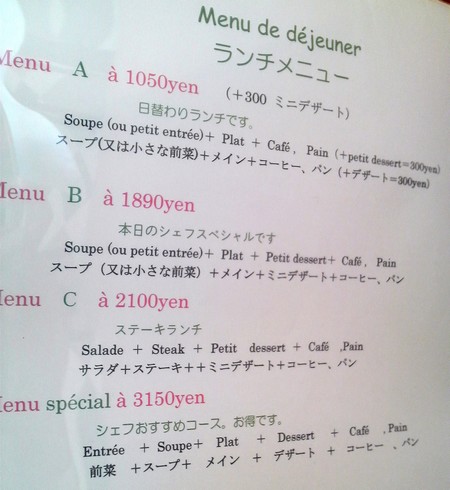 Menu de déjeuner
ランチメニュー
Menu A à 1050yen (＋300 ミニデザート)
日替わりランチです。
Soupe (ou petit entrée)＋ Plat ＋ Café , Pain (＋petit dessert＝300yen)
スープ(又は小さな前菜)＋メイン＋コーヒー、パン (＋デザート＝300yen)
Menu B à 1890yen
本日のシェフスペシャルです
Soupe (ou petit entrée)＋ Plat ＋ Petit dessert＋ Café , Pain
スープ（又は小さな前菜）＋メイン＋ミニデザート＋コーヒー、パン
Menu C à 2100yen
ステーキランチ
Salade ＋ Steak ＋ Petit dessert ＋ Café ,Pain
サラダ＋ステーキ＋＋ミニデザート＋コーヒー、パン
Menu spécial à 3150yen
シェフおすすめコース。お得です。
Entrée ＋ Soupe＋ Plat ＋ Dessert ＋ Café ,Pain
前菜 ＋スープ＋ メイン ＋ デザート ＋ コーヒー 、パン